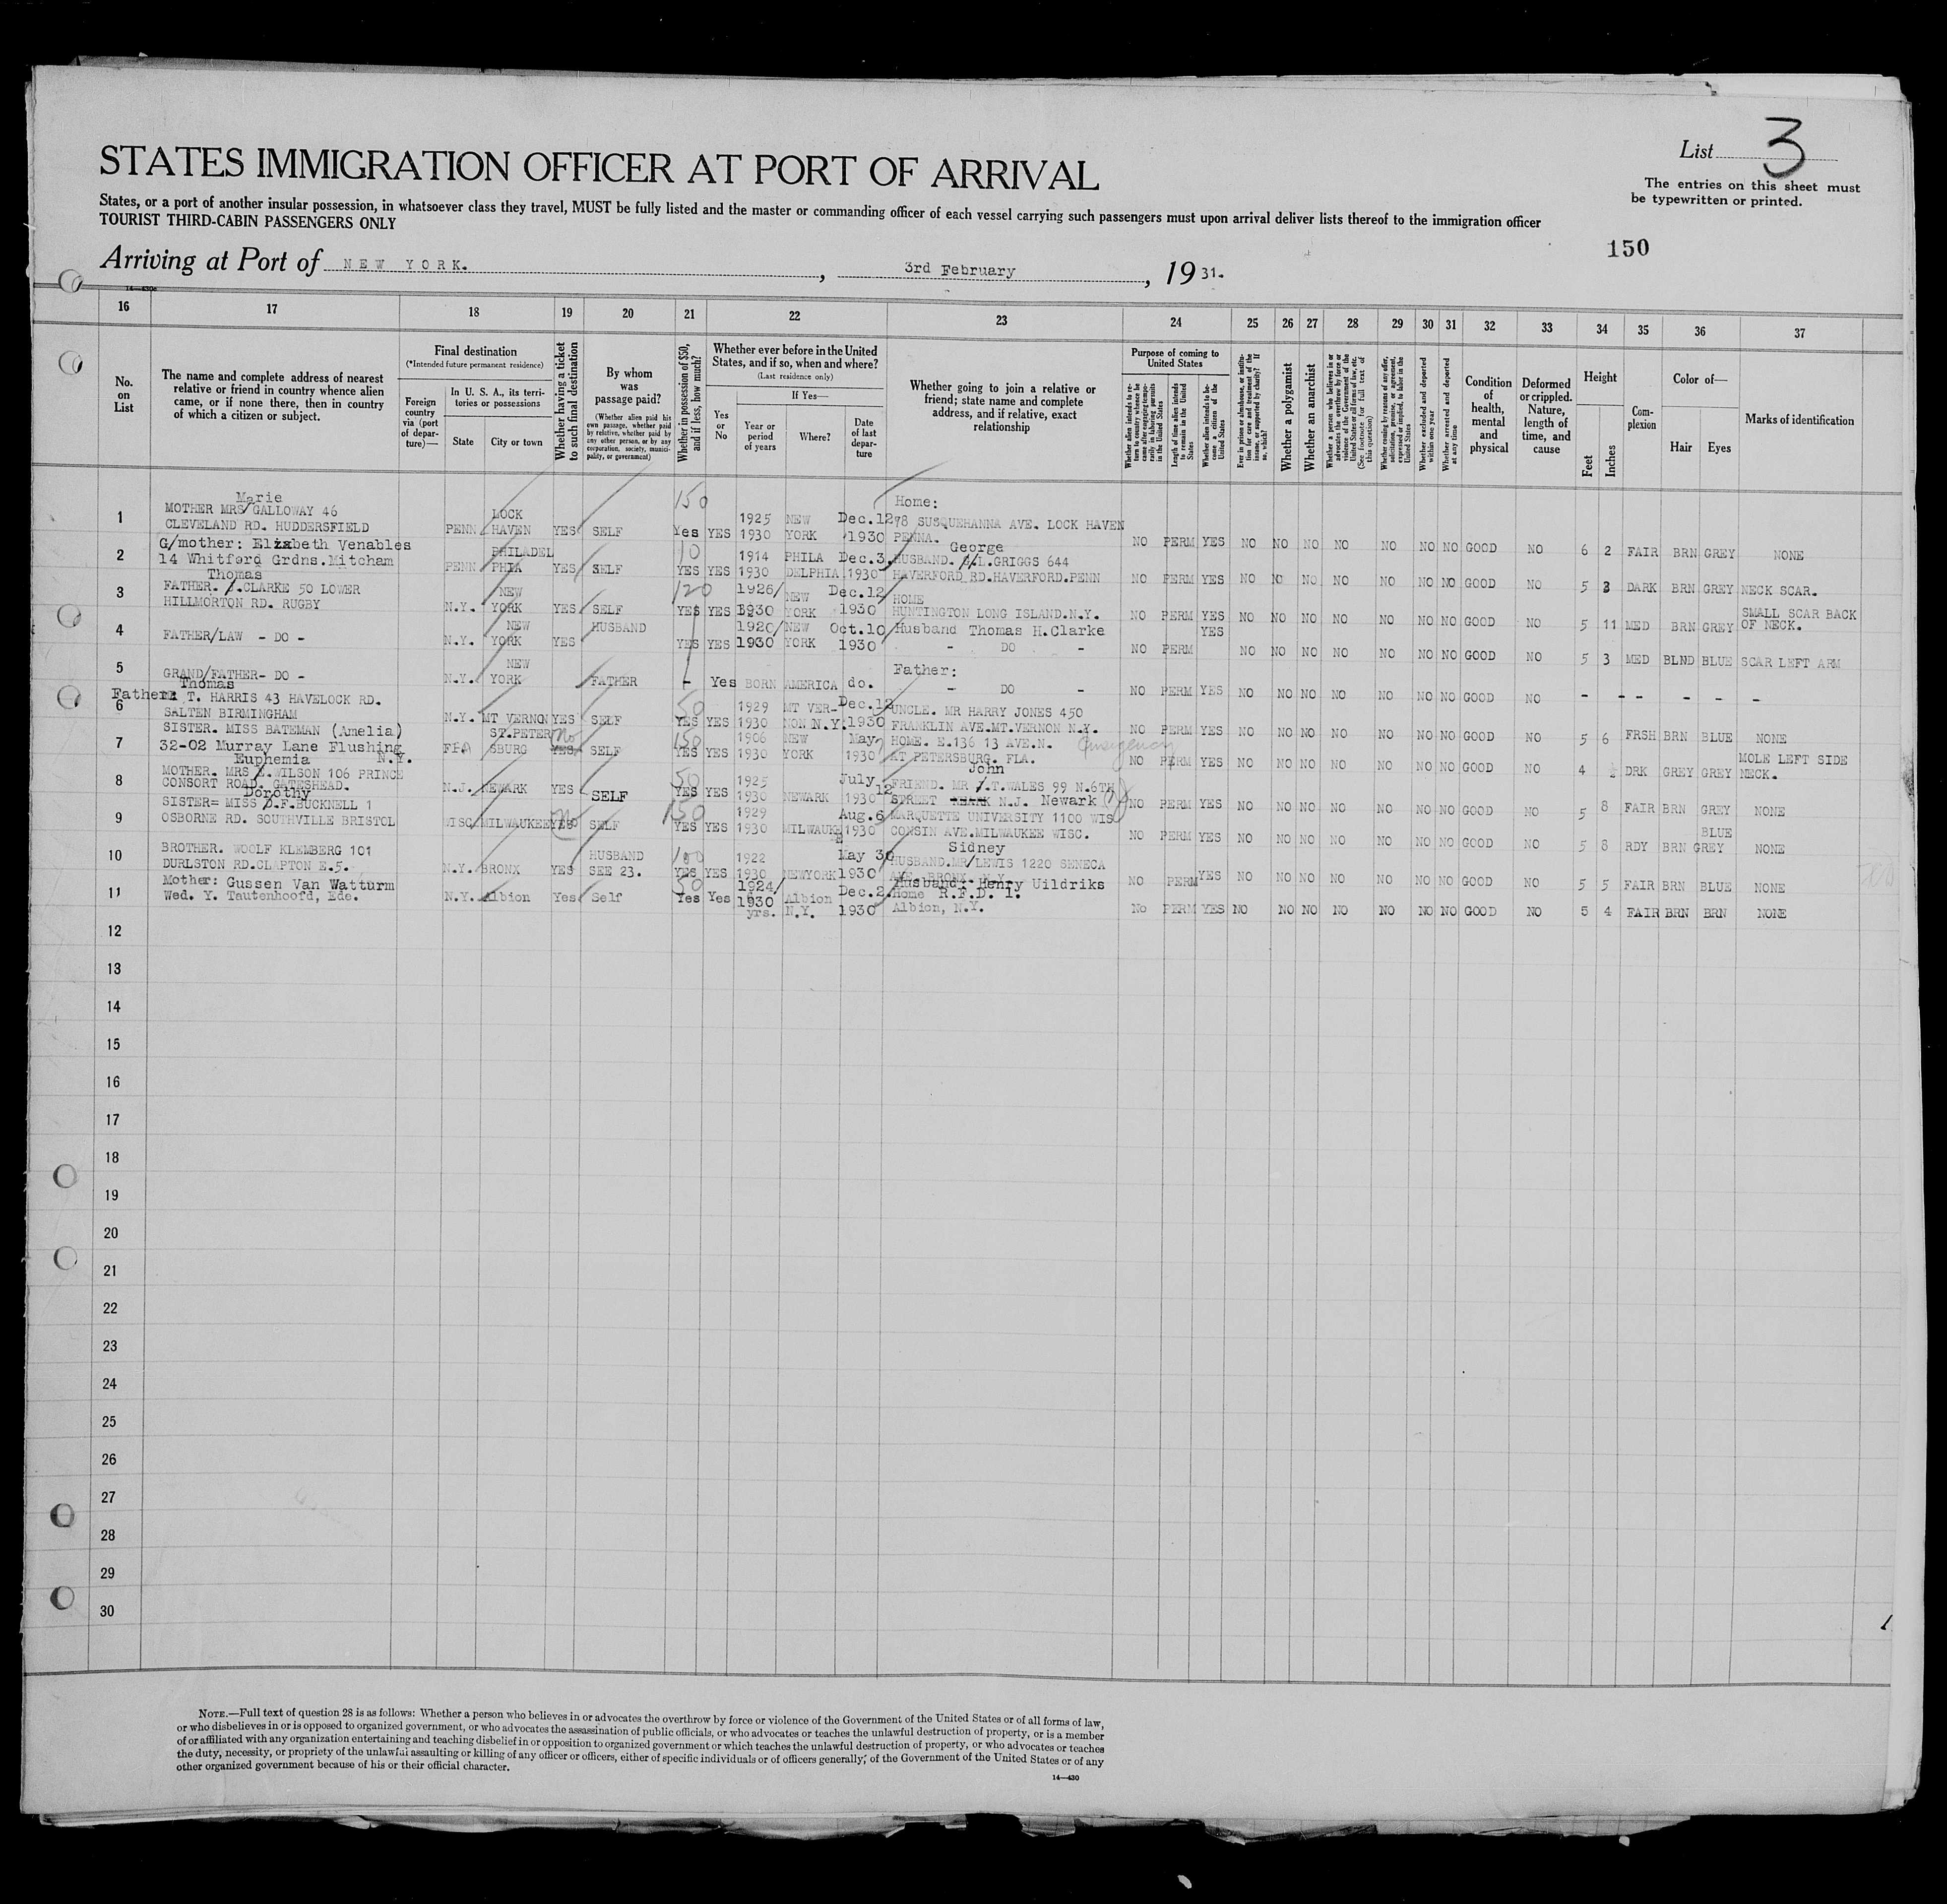 List 3
STATES IMMIGRATION OFFICER AT PORT OF ARRIVAL
The entries on this sheet must
be typewritten or printed.
States, or a port of another insular possession, in whatsoever class they travel, MUST be fully listed and the master or commanding officer of each vessel carrying such passengers must upon arrival deliver lists thereof to the immigration officer
TOURIST THIRD-CABIN PASSENGERS ONLY
150
Arriving at Port of NEW YORK. , 3rd February , 19 31.
14—430
16 17 18 19 20 21 22 23 24 25 26 27 28 29 30 31 32 33 34 35 36 37
No. on List
The name and complete address of nearest relative or friend in country whence alien came, or if none there, then in country of which a citizen or subject.
Final destination
(*Intended future permanent residence)
Foreign country via (port of departure)—
In U. S. A., its territories or possessions
State
City or town
Whether having a ticket to such final destination
By whom was passage paid?
(Whether alien paid his own passage, whether paid by relative, whether paid by any other person, or by any corporation, society, municipality, or government)
Whether in possession of $50, and if less, how much?
Whether ever before in the United States, and if so, when and where?
(Last residence only)
Yes or No
If Yes—
Year or period of years
Where?
Date of last departure
Whether going to join a relative or friend; state name and complete address, and if relative, exact relationship
Purpose of coming to United States
Whether alien intends to return to country whence he came after engaging temporarily in laboring pursuits in the United States
Length of time alien intends to remain in the United States
Whether alien intends to become a citizen of the United States
Ever in prison or almshouse, or institution for care and treatment of the insane, or supported by charity? If so, which?
Whether a polygamist
Whether an anarchist
Whether a person who believes in or advocates the overthrow by force or violence of the Government of the United States or all forms of law, etc. (See footnote for full text of this question)
Whether coming by reasons of any offer, solicitation, promise, or agreement, expressed or implied, to labor in the United States
Whether excluded and deported within one year
Whether arrested and deported at any time
Condition of health, mental and physical
Deformed or crippled. Nature, length of time, and cause
Height
Feet
Inches
Complexion
Color of—
Hair
Eyes
Marks of identification
1 MOTHER MRS Marie GALLOWAY 46 CLEVELAND RD. HUDDERSFIELD PENN LOCK HAVEN YES SELF 150 Yes YES 1925 1930 NEW YORK Dec.12 1930 Home: 78 SUSQUEHANNA AVE. LOCK HAVEN PENNA. NO PERM YES NO NO NO NO NO NO NO GOOD NO 6 2 FAIR BRN GREY NONE
2 G/mother: Elizabeth Venables 14 Whitford Grdns.Mitcham PENN PHILADELPHIA YES SELF 10 YES YES 1914 1930 PHILADELPHIA Dec.3 1930 HUSBAND. George L.GRIGGS 644 HAVERFORD RD.HAVERFORD.PENN NO PERM YES NO NO NO NO NO NO NO GOOD NO 5 3 DARK BRN GREY NECK SCAR.
3 FATHER. Thomas CLARKE 50 LOWER HILLMORTON RD. RUGBY N.Y. NEW YORK YES SELF 120 YES YES 1926/ 1930 NEW YORK Dec.12 1930 HOME HUNTINGTON LONG ISLAND.N.Y. NO PERM YES NO NO NO NO NO NO NO GOOD NO 5 11 MED BRN GREY SMALL SCAR BACK OF NECK.
4 FATHER/LAW - DO - N.Y. NEW YORK YES HUSBAND YES YES 1920/ 1930 NEW YORK Oct.10 1930 Husband Thomas H.Clarke - DO - NO PERM YES NO NO NO NO NO NO NO GOOD NO 5 3 MED BLND BLUE SCAR LEFT ARM
5 GRAND/FATHER- DO - N.Y. NEW YORK FATHER - Yes BORN AMERICA do. Father: - DO - NO PERM YES NO NO NO NO NO NO NO GOOD NO - - - - - -
6 Father: Thomas T. HARRIS 43 HAVELOCK RD. SALTEN BIRMINGHAM N.Y. MT VERNON YES SELF 50 YES YES 1929 1930 MT VERNON N.Y. Dec.12 1930 UNCLE. MR HARRY JONES 450 FRANKLIN AVE.MT.VERNON N.Y. NO PERM YES NO NO NO NO NO NO NO GOOD NO 5 6 FRSH BRN BLUE NONE
7 SISTER. MISS BATEMAN (Amelia) 32-02 Murray Lane Flushing N.Y. FLA ST.PETERSBURG YES No SELF 150 YES YES 1906 1930 NEW YORK May 1930 HOME. E.136 13 AVE.N. AT PETERSBURG. FLA. Emergency NO PERM YES NO NO NO NO NO NO NO GOOD NO 4 DRK GREY GREY MOLE LEFT SIDE NECK.
8 MOTHER. MRS Euphemia WILSON 106 PRINCE CONSORT ROAD. GATESHEAD. N.J. NEWARK YES SELF 50 YES YES 1925 1930 NEWARK July 12 1930 FRIEND. MR John T.WALES 99 N.6TH STREET N.J. Newark NO PERM YES NO NO NO NO NO NO NO GOOD NO 5 8 FAIR BRN GREY NONE
9 SISTER= MISS Dorothy F.BUCKNELL 1 OSBORNE RD. SOUTHVILLE BRISTOL WISC MILWAUKEE YES No SELF 150 YES YES 1929 1930 MILWAUKE E Aug.6 1930 MARQUETTE UNIVERSITY 1100 WISCONSIN AVE.MILWAUKEE WISC. NO PERM YES NO NO NO NO NO NO NO GOOD NO 5 8 RDY BRN BLUE GREY NONE
10 BROTHER. WOOLF KLEMBERG 101 DURLSTON RD.CLAPTON E.5. N.Y. BRONX YES HUSBAND SEE 23. 100 YES YES 1922 1930 NEWYORK May 30 1930 HUSBAND.MR Sidney LEWIS 1220 SENECA AVE. BRONX. N.Y. NO PERM YES NO NO NO NO NO NO NO GOOD NO 5 5 FAIR BRN BLUE NONE
11 Mother: Gussen Van Watturm Wed. Y. Tautenhoofd, Ede. N.Y. Albion Yes Self 50 Yes Yes 1924/ 1930 yrs. Albion N.Y. Dec.2 1930 Husband: Henry Uildriks Home R.F.D. 1. Albion, N.Y. No PERM YES NO NO NO NO NO NO NO GOOD NO 5 4 FAIR BRN BRN NONE
12
13
14
15
16
17
18
19
20
21
22
23
24
25
26
27
28
29
30
NOTE.—Full text of question 28 is as follows: Whether a person who believes in or advocates the overthrow by force or violence of the Government of the United States or of all forms of law,
or who disbelieves in or is opposed to organized government, or who advocates the assassination of public officials, or who advocates or teaches the unlawful destruction of property, or is a member
of or affiliated with any organization entertaining and teaching disbelief in or opposition to organized government or which teaches the unlawful destruction of property, or who advocates or teaches
the duty, necessity, or propriety of the unlawful assaulting or killing of any officer or officers, either of specific individuals or of officers generally, of the Government of the United States or of any
other organized government because of his or their official character.
14—430